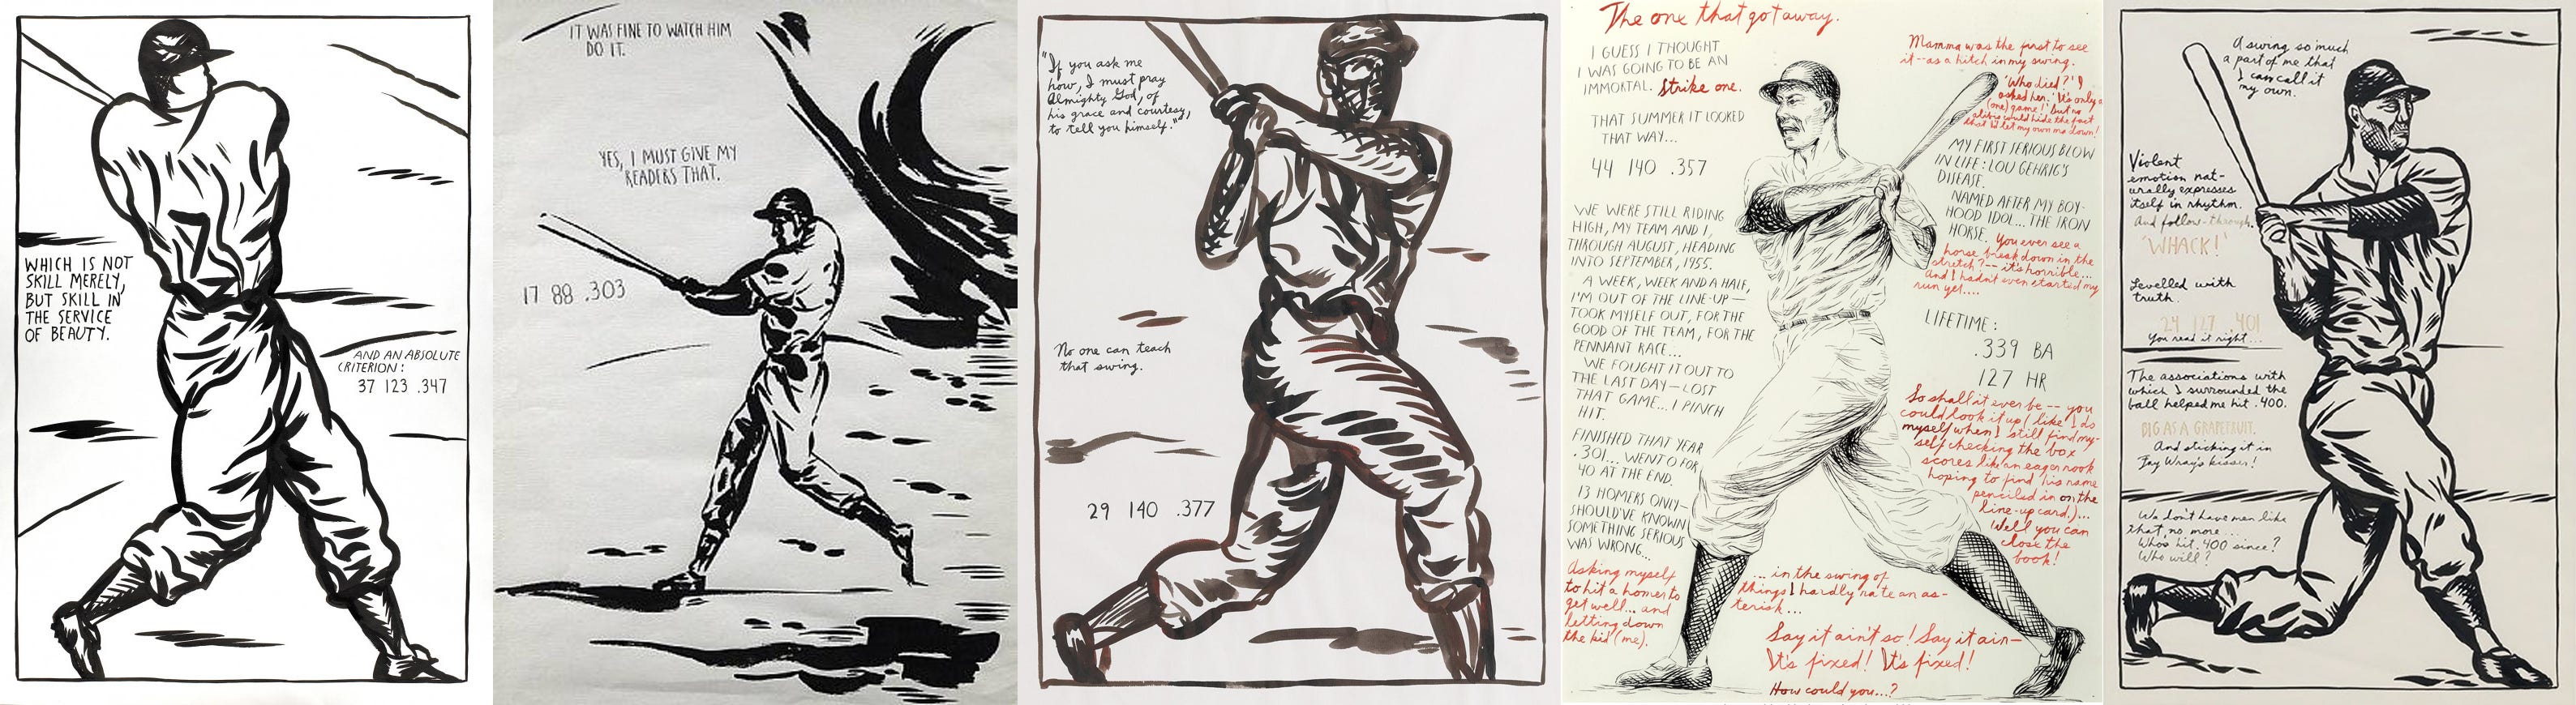 7
WHICH IS NOT
SKILL MERELY,
BUT SKILL IN
THE SERVICE
OF BEAUTY.
AND AN ABSOLUTE
CRITERION:
37 123 .347
IT WAS FINE TO WATCH HIM
DO IT.
YES, I MUST GIVE MY
READERS THAT.
17 88 .303
"If you ask me
how, I must pray
Almighty God, of
his grace and courtesy,
to tell you himself."
No one can teach
that swing.
29 140 .377
The one that got away.
I GUESS I THOUGHT
I WAS GOING TO BE AN
IMMORTAL. Strike one.
THAT SUMMER IT LOOKED
THAT WAY...
44 140 .357
WE WERE STILL RIDING
HIGH, MY TEAM AND I,
THROUGH AUGUST, HEADING
INTO SEPTEMBER, 1955.
A WEEK, WEEK AND A HALF,
I'M OUT OF THE LINE-UP—
TOOK MYSELF OUT, FOR THE
GOOD OF THE TEAM, FOR THE
PENNANT RACE...
WE FOUGHT IT OUT TO
THE LAST DAY—LOST
THAT GAME... I PINCH
HIT.
FINISHED THAT YEAR
.301... WENT 0 FOR
40 AT THE END.
13 HOMERS ONLY—
SHOULD'VE KNOWN
SOMETHING SERIOUS
WAS WRONG...
Asking myself
to hit a homer to
get well... and
letting down
the kid (me).
Mamma was the first to see
it--as a hitch in my swing.
'Who died?' I
asked her. 'It's only a
(one) game!' But no
alibis could hide the fact
that I'd let my own ma down!
MY FIRST SERIOUS BLOW
IN LIFE: LOU GEHRIG'S
DISEASE.
NAMED AFTER MY BOY-
HOOD IDOL... THE IRON
HORSE. You ever see a
horse break down in the
stretch?-- it's horrible...
And I hadn't even started my
run yet....
LIFETIME:
.339 BA
127 HR
So shall it ever be -- you
could look it up (like I do
myself when I still find my-
self checking the box
scores like an eager rook
hoping to find his name
penciled in on the
line-up card.)...
Well you can
close the
book!
... in the swing of
things I hardly rate an as-
terisk...
Say it ain't so! Say it ain—
It's fixed! It's fixed!
How could you...?
A swing so much
a part of me that
I can call it
my own.
Violent
emotion nat-
urally expresses
itself in rhythm.
And follow-through.
'WHACK!'
Levelled with
truth.
24 127 .401
You read it right...
The associations with
which I surrounded the
ball helped me hit .400.
BIG AS A GRAPEFRUIT.
And sticking it in
Jay Wray's kisser!
We don't have men like
that, no more...
Who's hit .400 since?
Who will?